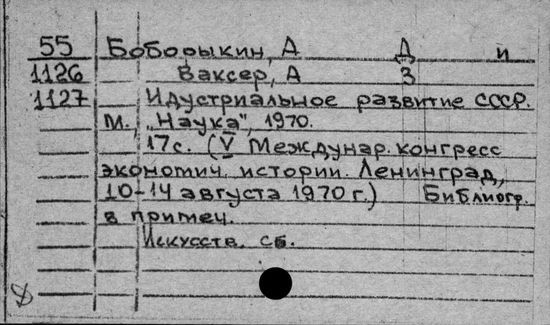 55 Боборыкин, А Д и
1126 Ваксер, А З
1127 Идустриальное развитие СССР.
М., „Наука", 1970.
17с. (V Междунар. конгресс
экономич. истории. Ленинград,
10-14 августа 1970 г.) Библиогр.
в примеч.
Искусств. сб.